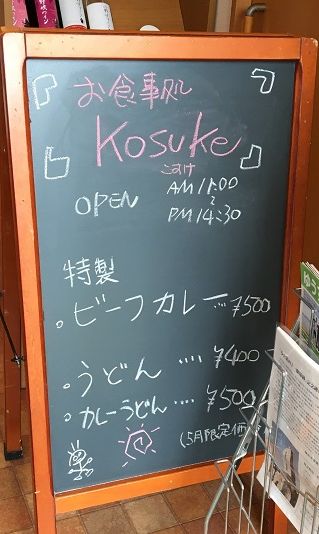 お食事処
Kosuke
こすけ
OPEN
AM 11:00
~
PM 14:30
特製
。ビーフカレー…¥500
。うどん‥‥¥400
。カレーうどん‥‥¥500
(5月限定価